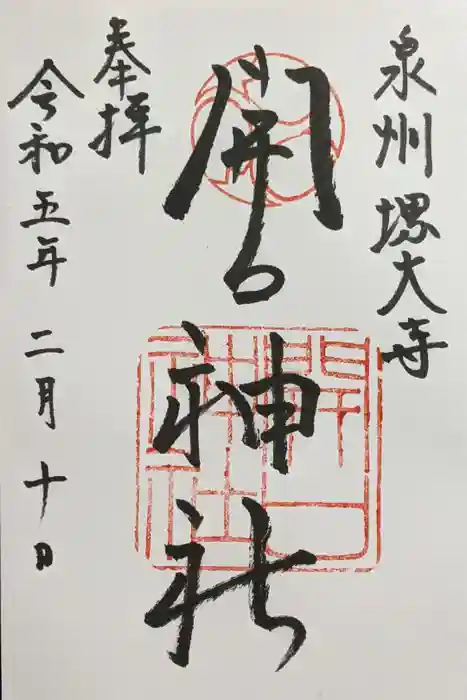 泉州堺大寺
開口神社
奉拝
令和五年二月十日
開口神社